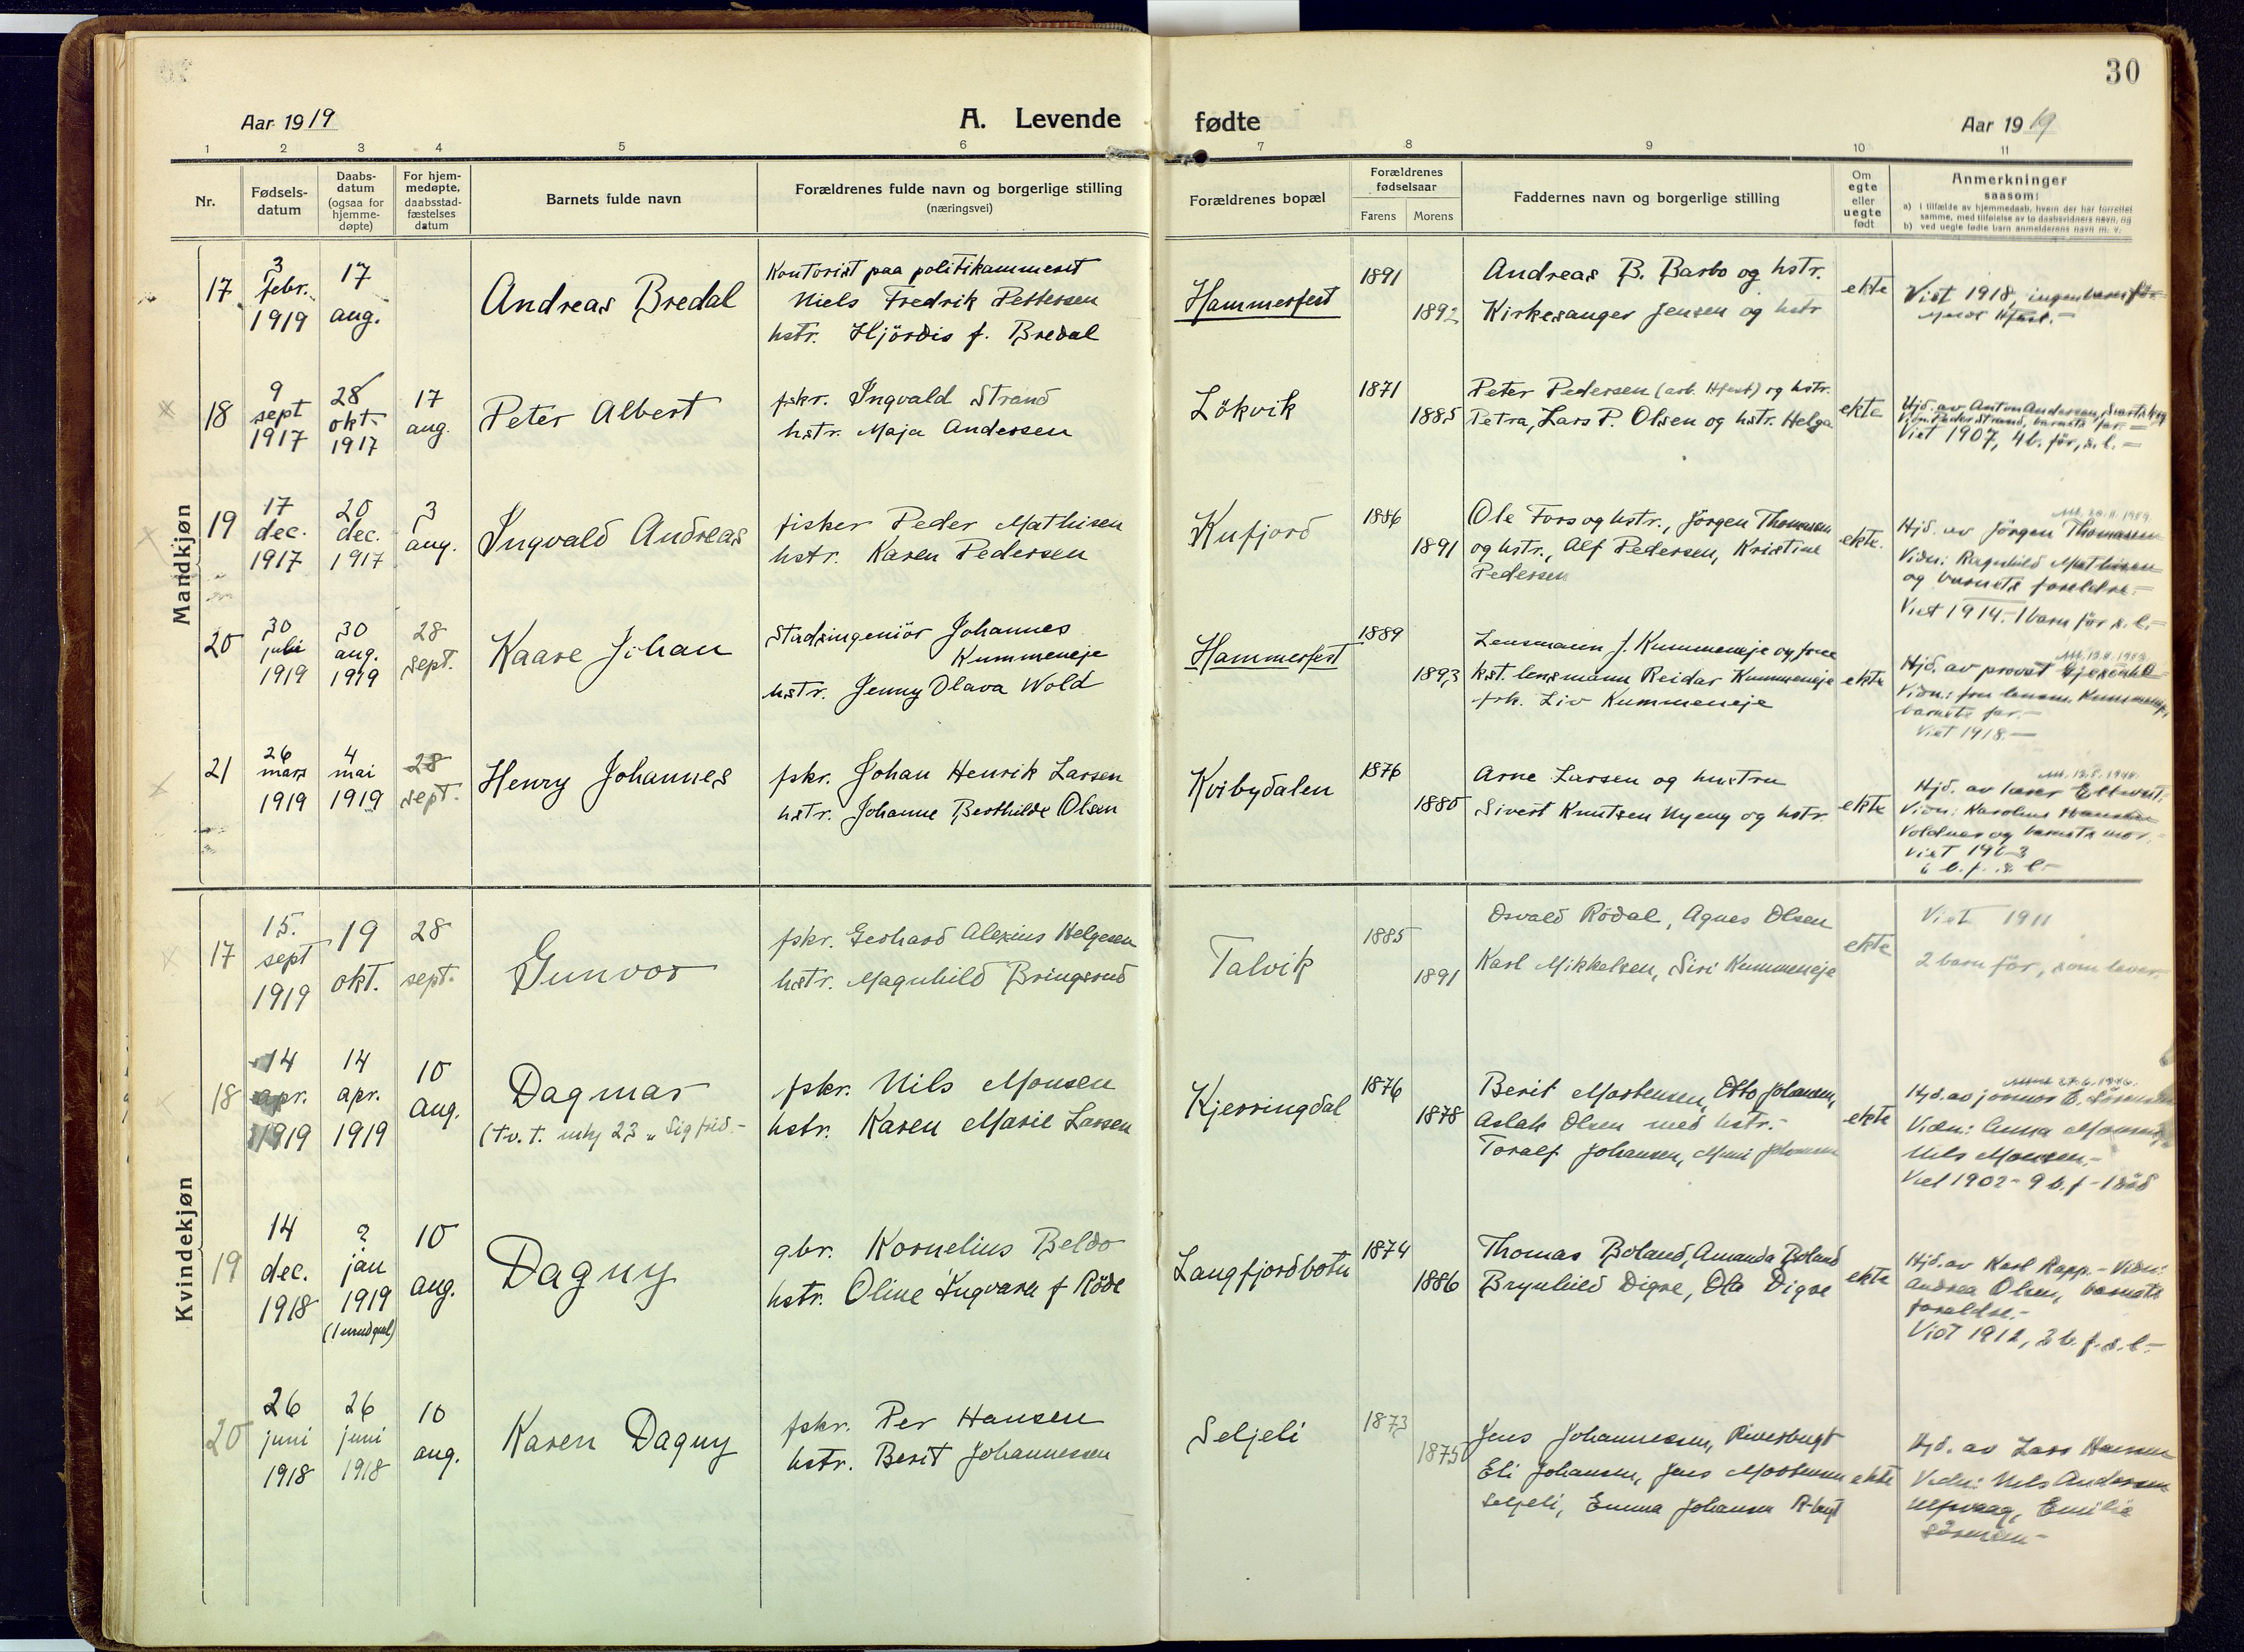 30
Aar 1919
A. Levende
fødte
Aar 1919
1 2 3 4 5 6 7 8 9 10 11
Nr.
Fødsels-
datum
Daabs-
datum
(ogsaa for
hjemme-
døpte)
For hjem-
medøpte,
daabsstad-
fæstelses
datum
Barnets fulde navn
Forældrenes fulde navn og borgerlige stilling
(næringsvei)
Forældrenes bopæl
Forældrenes
fødselsaar
Farens Morens
Faddernes navn og borgerlige stilling
Om
egte
eller
uegte
født
Anmerkninger
saasom:
a) i tilfælde av hjemmedaab, hvem der har forrettet
samme, med tilføielse av to daabsvidners navn, og
b) ved uegte fødte barn anmelderens navn m. v.
Mandkjøn
17
3
febr.
1919
17
aug.
Andreas Bredal
Kontorist paa politikammeret
Niels Fredrik Pettersen
hstr. Hjördis f. Bredal
Hammerfest
1891
1892
Andreas B. Barbo og hstr.
Kirkesanger Jensen og hstr
ekte
Viet 1918, ingen barn för
18
9
sept
1917
28
okt.
1917
17
aug.
Peter Albert
fskr. Ingvald Strand
hstr. Maja Andersen
Lökvik
1871
1885
Peter Pedersen (arb. Hfest) og hstr.
Petra, Lars P. Olsen og hstr. Helga
ekte
Hjd. av Anton Andersen,
Vidn. Peder Strand, barnets far.
Viet 1907, 4 b. för, s. l.
19
17
dec.
1917
20
dec.
1917
3
aug.
Ingvald Andreas
fisker Peder Mathisen
hstr. Karen Pedersen
Kufjord
1886
1891
Ole Fors og hstr., Jörgen Thomassen
og hstr., Alf Pedersen, Kristine
Pedersen
ekte.
Hjd. av Jörgen Thomassen
Vidn: Ragnhild Mathisen
og barnets foreldre.
Viet 1914. 1 barn för s. l.
20
30
juli
1919
30
aug.
1919
28
sept.
Kaare Johan
Stadsingeniör Johannes
Kummeneje
hstr. Jenny Olava Wold
Hammerfest
1889
1893
Lensmann J. Kummeneje og frue
kst. lensmann Reidar Kummeneje
frk. Liv Kummeneje
ekte
Hjd. av provst Gjessdahl
Vidn.: fru lensm. Kummeneje,
barnets far.
Viet 1918.
21
26
mars
1919
4
mai
1919
28
sept.
Henry Johannes
fskr. Johan Henrik Larsen
hstr. Johanne Berthilde Olsen
Kvibydalen
1876
1880
Arne Larsen og hustru
Sivert Knutsen Nyeng og hstr.
ekte
Hjd. av lærer
Vidn: Karoline Hansen
Voldnes og barnets mor.
Viet 1903
6 b. f. s. l.
Kvindekjøn
17
15.
sept
1919
19
okt.
28
sept.
Gunvor
fskr. Gerhard Alexius Helgesen
hstr. Magnhild Bringsrud
Talvik
1885
1891
Osvald Rödal, Agnes Olsen
Karl Mikkelsen, Siri Kummeneje
ekte
Viet 1911
2 barn för, som lever.
18
14
apr.
1919
14
apr.
1919
10
aug.
Dagmar
(tv. t. m nr 23 „Sigfrid.
fskr. Nils Monsen
hstr. Karen Marie Larsen
Kjerringdal
1876
1878
Berit Mortensen, Otto Johansen,
Aslak Olsen med hstr.
Toralf Johansen, Johansen
ekte
Hjd. av jormor E. Sörensen
Vidn: Anna Monsen,
Nils Monsen.
Viet 1902 - 9 b. f - 1 död
19
14
dec.
1918
?
jan
1919
10
aug.
Dagny
gbr. Kornelius Beldo
hstr. Oline Ingvarda f Röde
Langfjordbotn
1874
1886
Thomas Boland, Amanda Boland
Brynhild Digre, Ola Digre
ekte
Hjd. av Karl Rapp. - Vidn:
Andrea Olsen, barnets
foreldre.
Viet 1912, 3 b. f. s. l.
20
26
juni
1918
26
juni
1918
10
aug.
Karen Dagny
fskr. Per Hansen
hstr. Berit Johannessen
Seljeli
1873
1875
Jens Johannessen, Riverbugt
Eli Johansen, Jens Mortensen
Seljeli, Emma Johansen R-bugt
ekte
Hjd. av Lars Hansen
Vidn: Nils Andersen
Ulfsvaag, Emilie
Sörensen